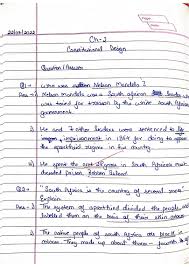 22/03/2022
Ch-2
Constitutional Design
Question/Answer
Q1→ Who was Nelson Mandela?
Ans→ 1) Nelson Mandela was a South African who
was tried for treason by the white South African
government.
2) He and 7 other leaders were sentenced to life
imprisonment in 1964 for daring to oppose
the apartheid regime in his country.
3) He spent the next 28 years in South Africa's most
dreaded prison, Robben Island.
Q2→ "South Africa is the country of several races"
Explain.
Ans→ 1) The system of apartheid divided the people and
labelled them on the basis of their skin colour.
2) The native people of South Africa are black in
colour. They made up about three-fourth